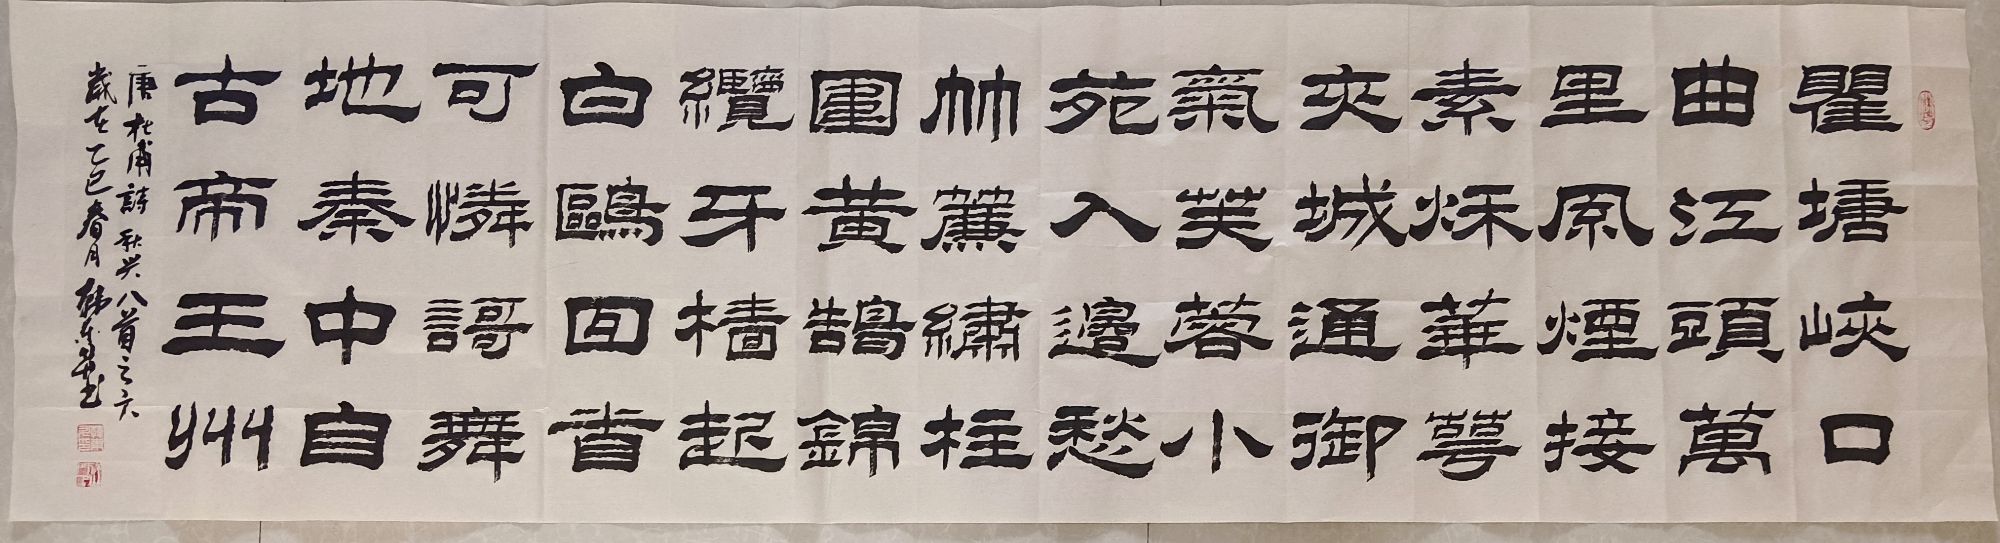 瞿塘峽口
曲江頭萬
里風煙接
素秌華萼
夾城通御
氣芙蓉小
苑入邊愁
朱簾繡柱
圍黃鵠錦
纜牙檣起
白鷗回首
可憐謌舞
地秦中自
古帝王州
唐杜甫詩秋兴八首之六
歲在乙巳春月韩